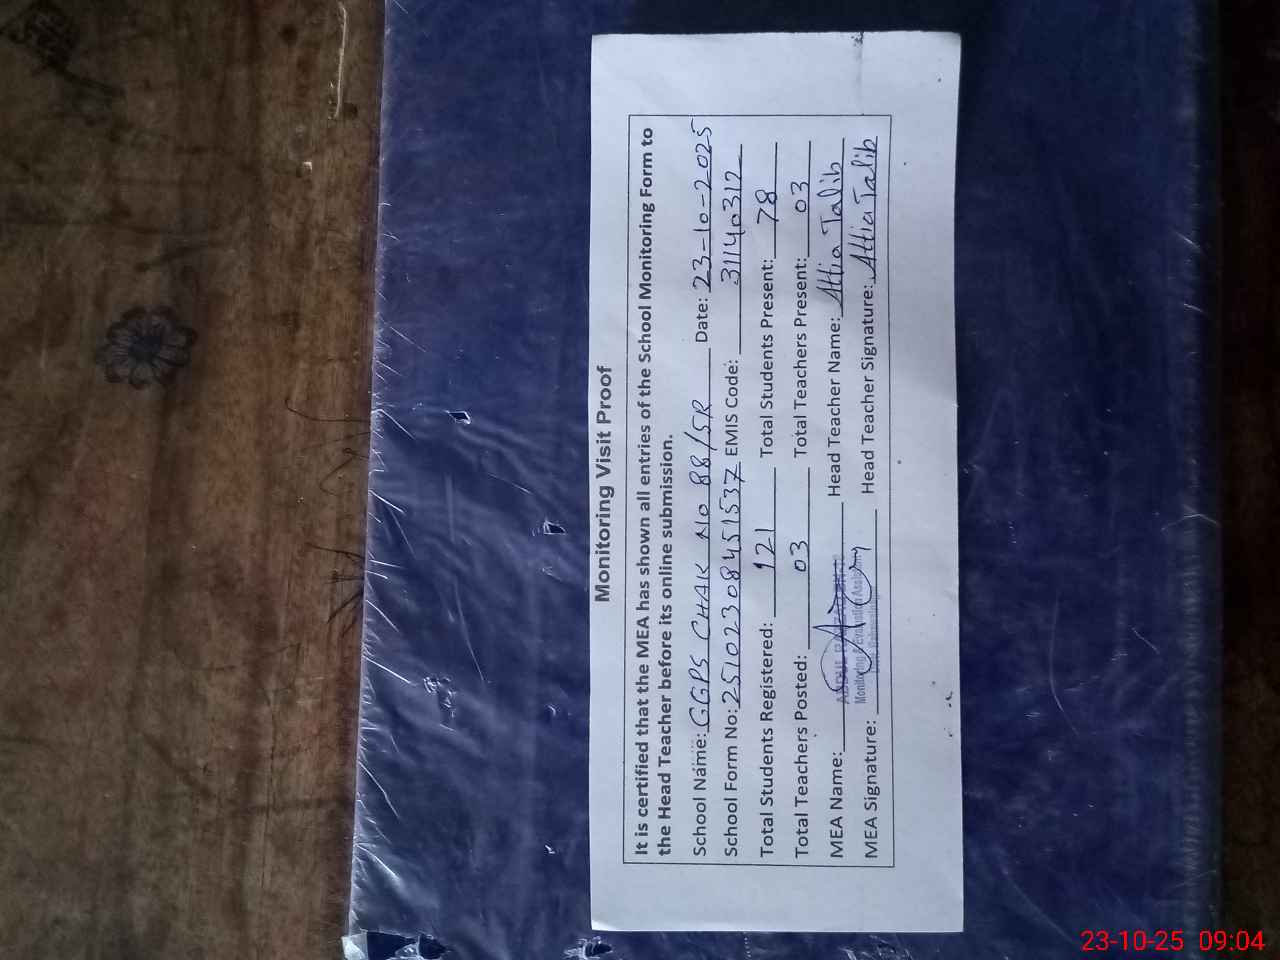 Monitoring Visit Proof
It is certified that the MEA has shown all entries of the School Monitoring Form to
the Head Teacher before its online submission.
School Name: GGPS CHAK No 88/5R Date: 23-10-2025
School Form No: 25102308451537 EMIS Code: 31140312
Total Students Registered: 121 Total Students Present: 78
Total Teachers Posted: 03 Total Teachers Present: 03
MEA Name: Head Teacher Name: Attia Talib
Monitoring & Evaluation Assistant
MEA Signature: Head Teacher Signature: Attia Talib
23-10-25 09:04